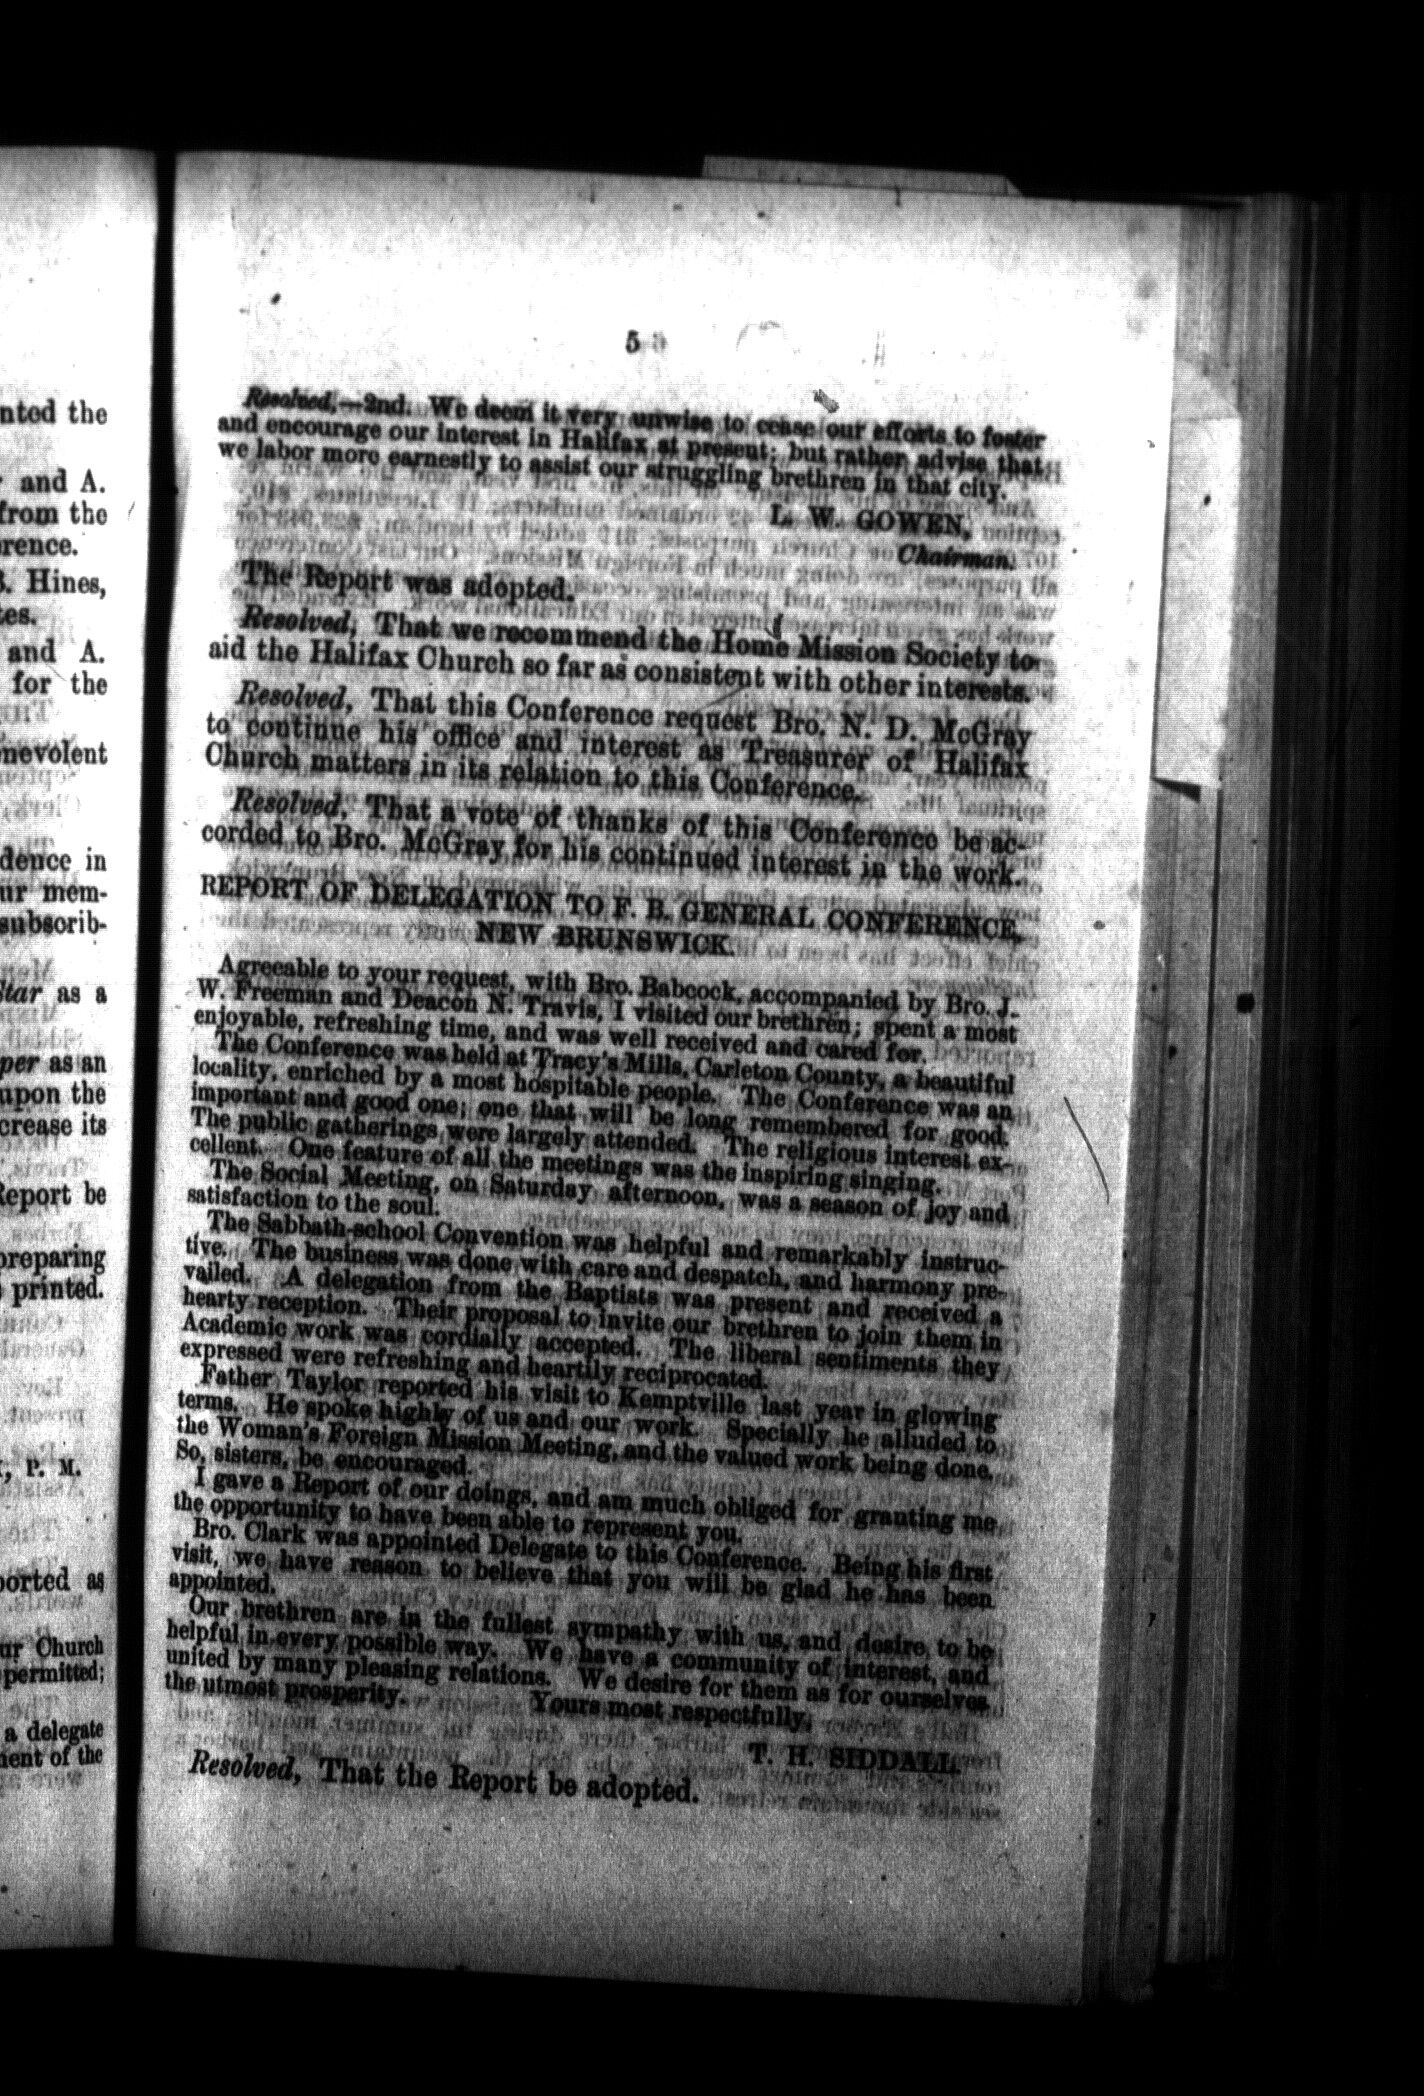 nted the
and A.
from the
rence.
B. Hines,
tes.
and A.
for the
nevolent
dence in
ur mem-
subscrib-
Star as a
per as an
upon the
crease its
Report be
preparing
printed.
P. M.
ported as
ur Church
permitted;
a delegate
ment of the
5
Resolved,—2nd. We deem it very unwise to cease our efforts to foster
and encourage our interest in Halifax at present; but rather advise that
we labor more earnestly to assist our struggling brethren in that city.
L. W. GOWEN,
Chairman.
The Report was adopted.
Resolved, That we recommend the Home Mission Society to
aid the Halifax Church so far as consistent with other interests.
Resolved, That this Conference request Bro. N. D. McGray
to continue his office and interest as Treasurer of Halifax
Church matters in its relation to this Conference.
Resolved, That a vote of thanks of this Conference be ac-
corded to Bro. McGray for his continued interest in the work.
REPORT OF DELEGATION TO F. B. GENERAL CONFERENCE,
NEW BRUNSWICK.
Agreeable to your request, with Bro. Babcock, accompanied by Bro. J.
W. Freeman and Deacon N. Travis, I visited our brethren; spent a most
enjoyable, refreshing time, and was well received and cared for.
The Conference was held at Tracy's Mills, Carleton County, a beautiful
locality, enriched by a most hospitable people. The Conference was an
important and good one; one that will be long remembered for good.
The public gatherings were largely attended. The religious interest ex-
cellent. One feature of all the meetings was the inspiring singing.
The Social Meeting, on Saturday afternoon, was a season of joy and
satisfaction to the soul.
The Sabbath-school Convention was helpful and remarkably instruc-
tive. The business was done with care and despatch, and harmony pre-
vailed. A delegation from the Baptists was present and received a
hearty reception. Their proposal to invite our brethren to join them in
Academic work was cordially accepted. The liberal sentiments they
expressed were refreshing and heartily reciprocated.
Father Taylor reported his visit to Kemptville last year in glowing
terms. He spoke highly of us and our work. Specially he alluded to
the Woman's Foreign Mission Meeting, and the valued work being done.
So, sisters, be encouraged.
I gave a Report of our doings, and am much obliged for granting me
the opportunity to have been able to represent you.
Bro. Clark was appointed Delegate to this Conference. Being his first
visit, we have reason to believe that you will be glad he has been
appointed.
Our brethren are in the fullest sympathy with us, and desire to be
helpful in every possible way. We have a community of interest, and
united by many pleasing relations. We desire for them as for ourselves
the utmost prosperity. Yours most respectfully,
T. H. SIDDALL.
Resolved, That the Report be adopted.